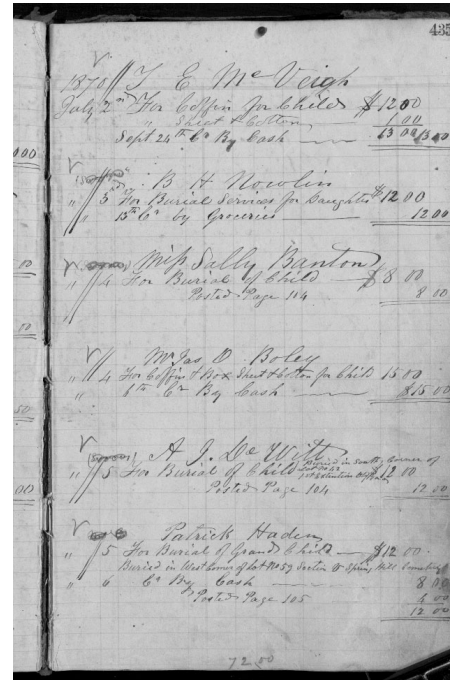 435
1870 T E McVeigh
July 2nd For Coffin for Child $12 00
" Sheet & Cotton 1.00
Sept 24th Cr By Cash 13 00 13 00
B H Nowlin
" 3 For Burial Services for Daughter $12 00
" 15th Cr by Groceries 12 00
Miss Sally Banton
" 4 For Burial of Child $8 00
Posted Page 104 8 00
Mr Jas. O. Boley
" 4 For Coffin & Box Sheet & Cotton for Child 15 00
" 6th Cr By Cash $15 00
A J DeWitt
Buried in South Corner of
" 5 For Burial of Child $12 00
Posted Page 104 12 00
Patrick Haden
" 5 For Burial of Grand Child $12 00
Buried in West Corner of Lot No 59 Section Spring Hill
" 6 Cr By Cash 8 00
Posted Page 105 4 00
12 00
72.00